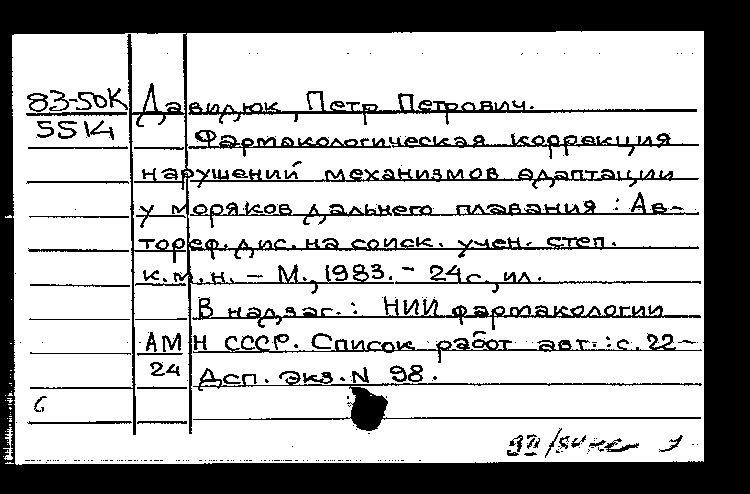 83-50К Давидюк, Петр Петрович.
5514
Фармакологическая коррекция
нарушений механизмов адаптации
у моряков дальнего плавания : Ав-
тореф. дис. на соиск. учен. степ.
к.м.н. – М., 1983. – 24 с., ил.
В надзаг.: НИИ фармакологии
АМН СССР. Список работ авт.: с. 22-
24 Дсп. экз. N 98.
6